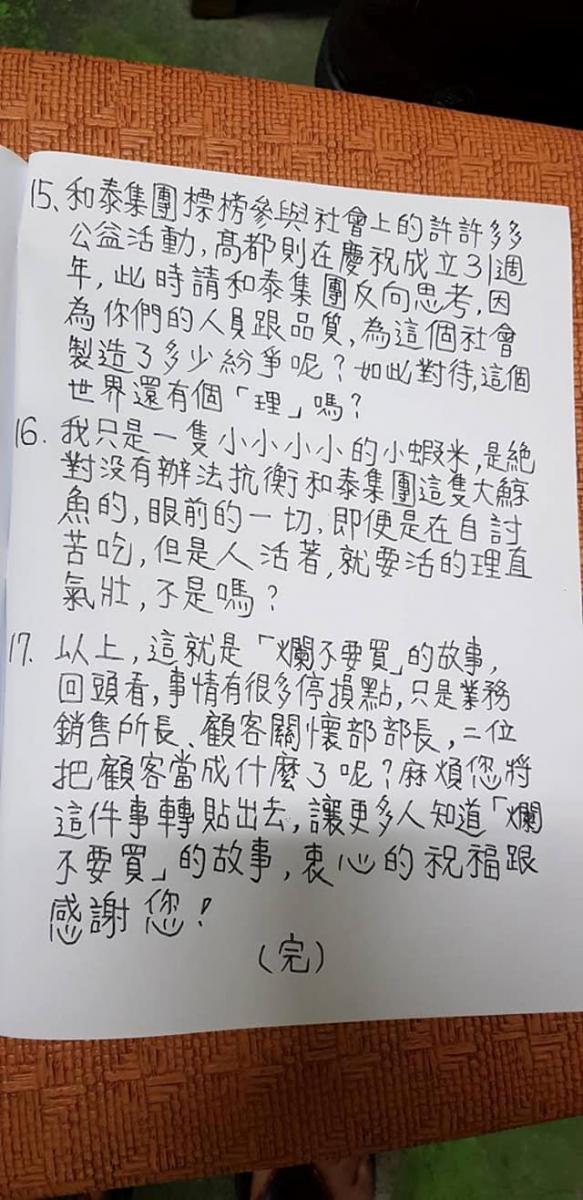 15、和泰集團標榜參與社會上的許許多多
公益活動，高都則在慶祝成立31週
年，此時請和泰集團反向思考，因
為你們的人員跟品質，為這個社會
製造了多少紛爭呢？如此對待，這個
世界還有個「理」嗎？
16. 我只是一隻小小小小的小蝦米，是絕
對沒有辦法抗衡和泰集團這隻大鯨
魚的，眼前的一切，即便是在自討
苦吃，但是人活著，就要活的理直
氣壯，不是嗎？
17. 以上，這就是「爛不要買」的故事，
回頭看，事情有很多停損點，只是業務
銷售所長、顧客關懷部部長，二位
把顧客當成什麼了呢？麻煩您將
這件事轉貼出去，讓更多人知道「爛
不要買」的故事，衷心的祝福跟
感謝您！
（完）